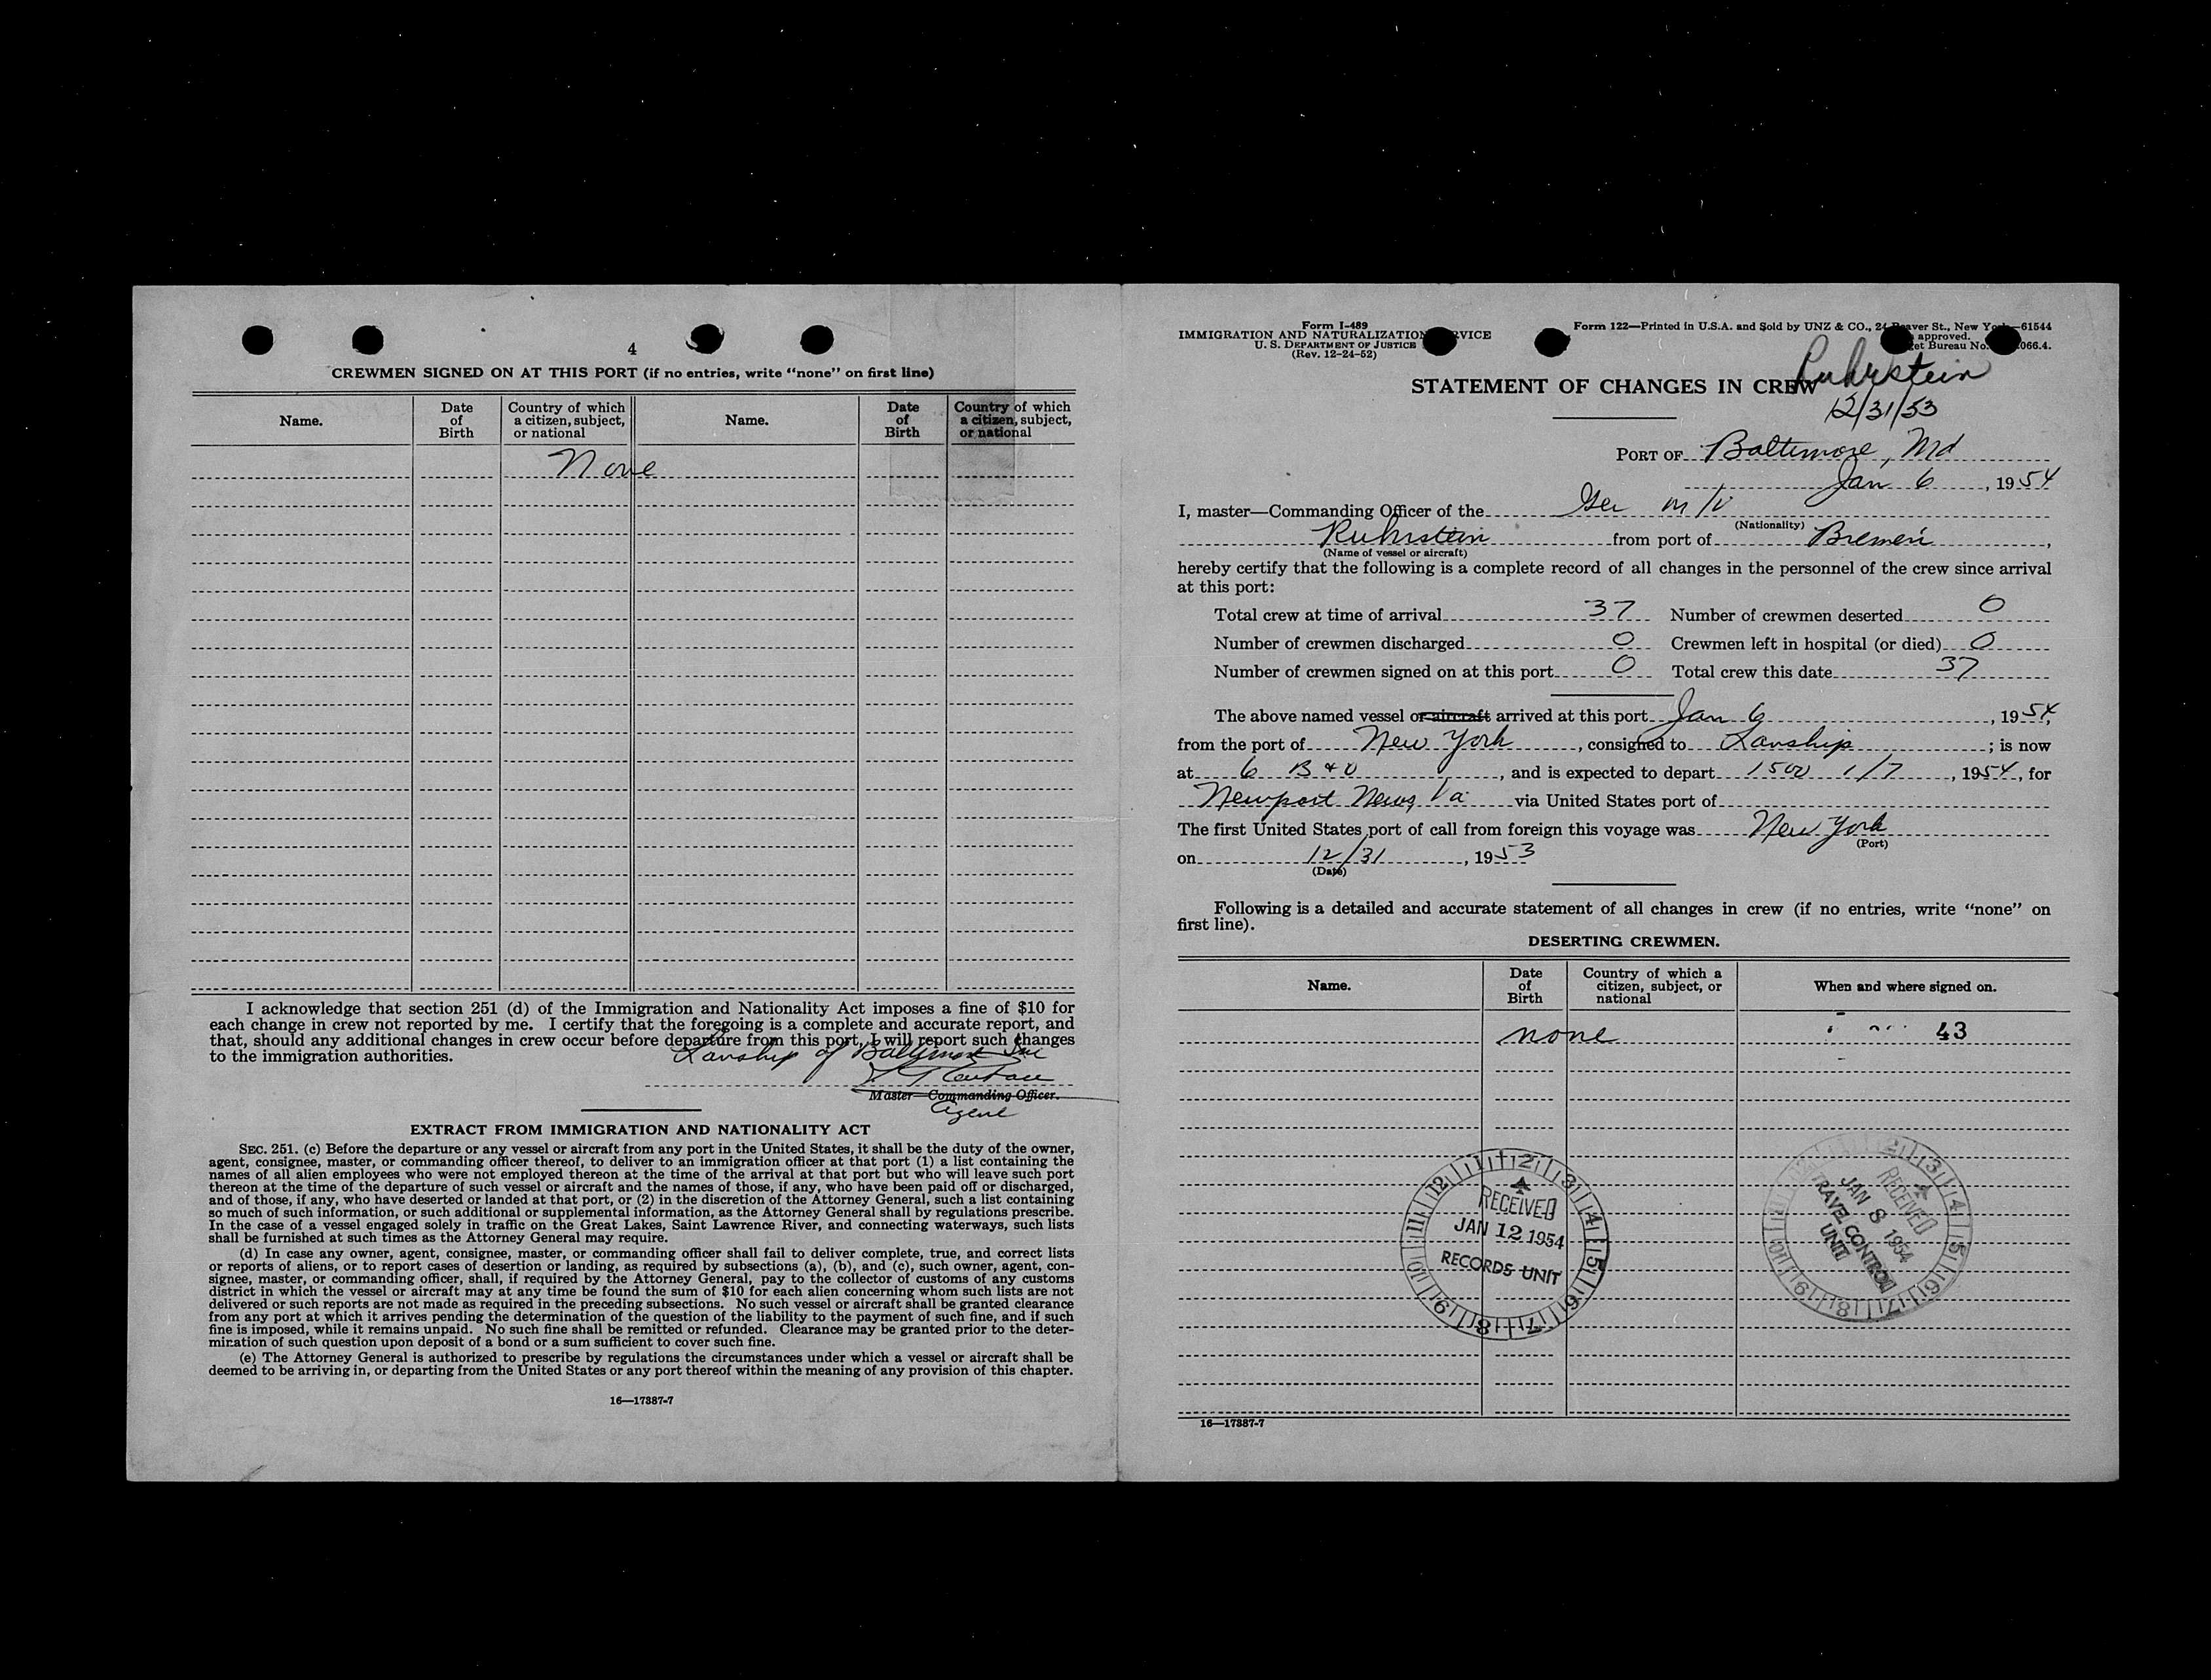 4
CREWMEN SIGNED ON AT THIS PORT (if no entries, write “none” on first line)
Name. Date of Birth Country of which a citizen, subject, or national Name. Date of Birth Country of which a citizen, subject, or national
None
I acknowledge that section 251 (d) of the Immigration and Nationality Act imposes a fine of $10 for
each change in crew not reported by me. I certify that the foregoing is a complete and accurate report, and
that, should any additional changes in crew occur before departure from this port, I will report such changes
to the immigration authorities.
Lavship of Baltimore Inc
Master—Commanding Officer.
Agent
EXTRACT FROM IMMIGRATION AND NATIONALITY ACT
SEC. 251. (c) Before the departure or any vessel or aircraft from any port in the United States, it shall be the duty of the owner,
agent, consignee, master, or commanding officer thereof, to deliver to an immigration officer at that port (1) a list containing the
names of all alien employees who were not employed thereon at the time of the arrival at that port but who will leave such port
thereon at the time of the departure of such vessel or aircraft and the names of those, if any, who have been paid off or discharged,
and of those, if any, who have deserted or landed at that port, or (2) in the discretion of the Attorney General, such a list containing
so much of such information, or such additional or supplemental information, as the Attorney General shall by regulations prescribe.
In the case of a vessel engaged solely in traffic on the Great Lakes, Saint Lawrence River, and connecting waterways, such lists
shall be furnished at such times as the Attorney General may require.
(d) In case any owner, agent, consignee, master, or commanding officer shall fail to deliver complete, true, and correct lists
or reports of aliens, or to report cases of desertion or landing, as required by subsections (a), (b), and (c), such owner, agent, con-
signee, master, or commanding officer, shall, if required by the Attorney General, pay to the collector of customs of any customs
district in which the vessel or aircraft may at any time be found the sum of $10 for each alien concerning whom such lists are not
delivered or such reports are not made as required in the preceding subsections. No such vessel or aircraft shall be granted clearance
from any port at which it arrives pending the determination of the question of the liability to the payment of such fine, and if such
fine is imposed, while it remains unpaid. No such fine shall be remitted or refunded. Clearance may be granted prior to the deter-
mination of such question upon deposit of a bond or a sum sufficient to cover such fine.
(e) The Attorney General is authorized to prescribe by regulations the circumstances under which a vessel or aircraft shall be
deemed to be arriving in, or departing from the United States or any port thereof within the meaning of any provision of this chapter.
16—17387-7
Form I-489
IMMIGRATION AND NATURALIZATION SERVICE
U. S. DEPARTMENT OF JUSTICE
(Rev. 12-24-52)
Form 122—Printed in U.S.A. and Sold by UNZ & CO., 24 Beaver St., New York—61544
approved.
et Bureau No. 066.4.
Ruhrstein
STATEMENT OF CHANGES IN CREW
12/31/53
PORT OF Baltimore, Md
Jan 6, 1954
I, master—Commanding Officer of the Ger m/v
(Nationality)
Ruhrstein from port of Bremen,
(Name of vessel or aircraft)
hereby certify that the following is a complete record of all changes in the personnel of the crew since arrival
at this port:
Total crew at time of arrival 37 Number of crewmen deserted 0
Number of crewmen discharged 0 Crewmen left in hospital (or died) 0
Number of crewmen signed on at this port 0 Total crew this date 37
The above named vessel or aircraft arrived at this port Jan 6, 1954,
from the port of New York, consigned to Lavship; is now
at 6 B & O, and is expected to depart 1500 1/7, 1954, for
Newport News, Va via United States port of
The first United States port of call from foreign this voyage was New York
(Port)
on 12/31, 1953
(Date)
Following is a detailed and accurate statement of all changes in crew (if no entries, write “none” on
first line).
DESERTING CREWMEN.
Name. Date of Birth Country of which a citizen, subject, or national When and where signed on.
none 43
RECEIVED
JAN 12 1954
RECORDS UNIT
RECEIVED
JAN 8 1954
TRAVEL CONTROL
UNIT
16—17387-7